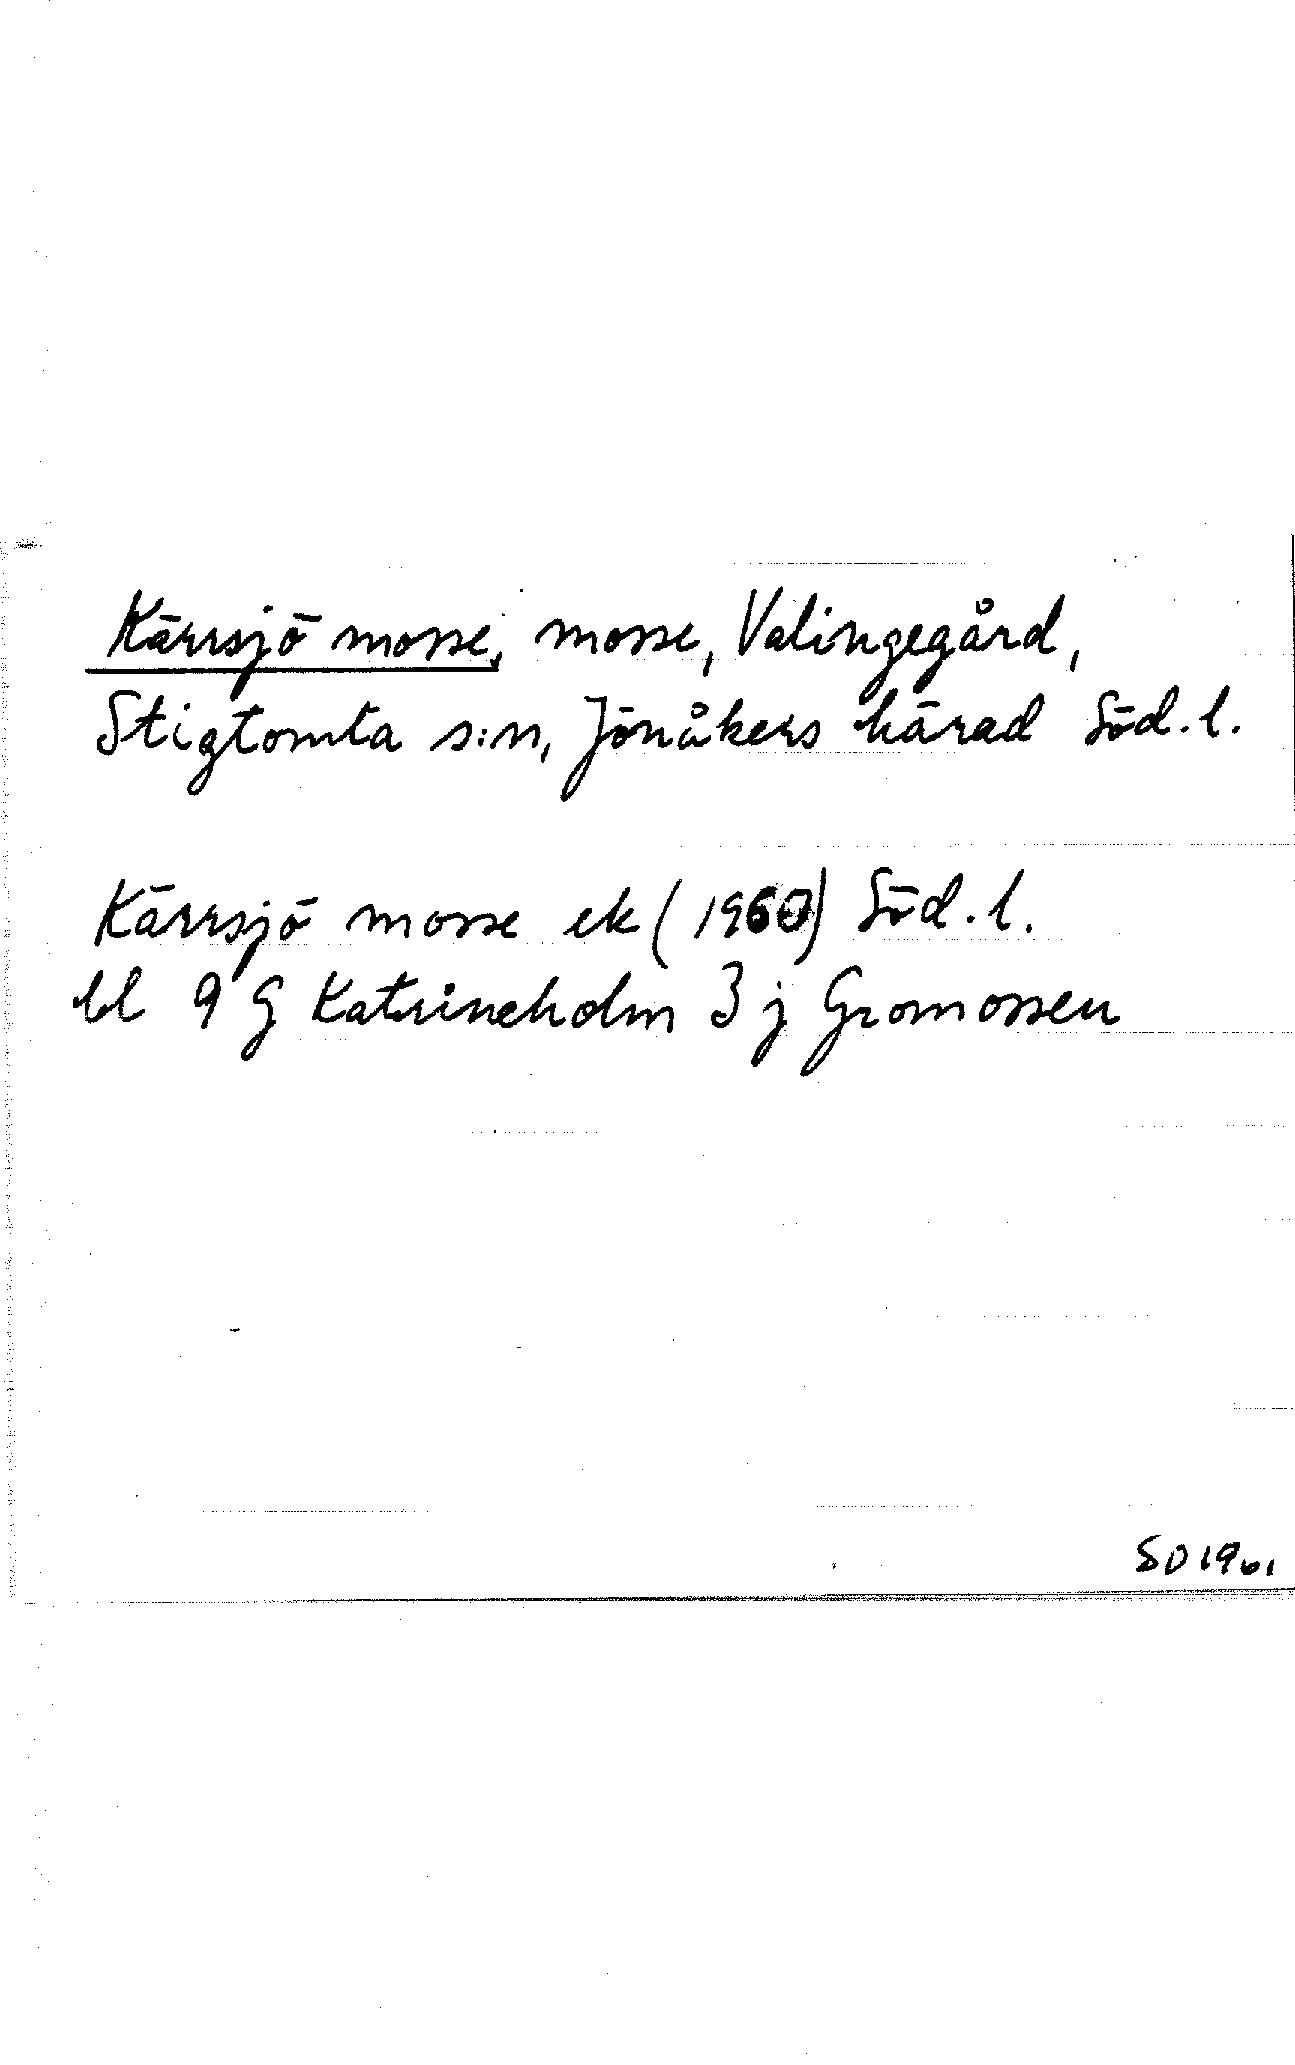 Kärrsjö mosse, mosse, Valingegård,
Stigtomta s:n, Jönåkers härad Söd.l.
Kärrsjö mosse ek (1960) Söd.l.
bl 9 G Katrineholm 3 j Gromossen
SD 1961